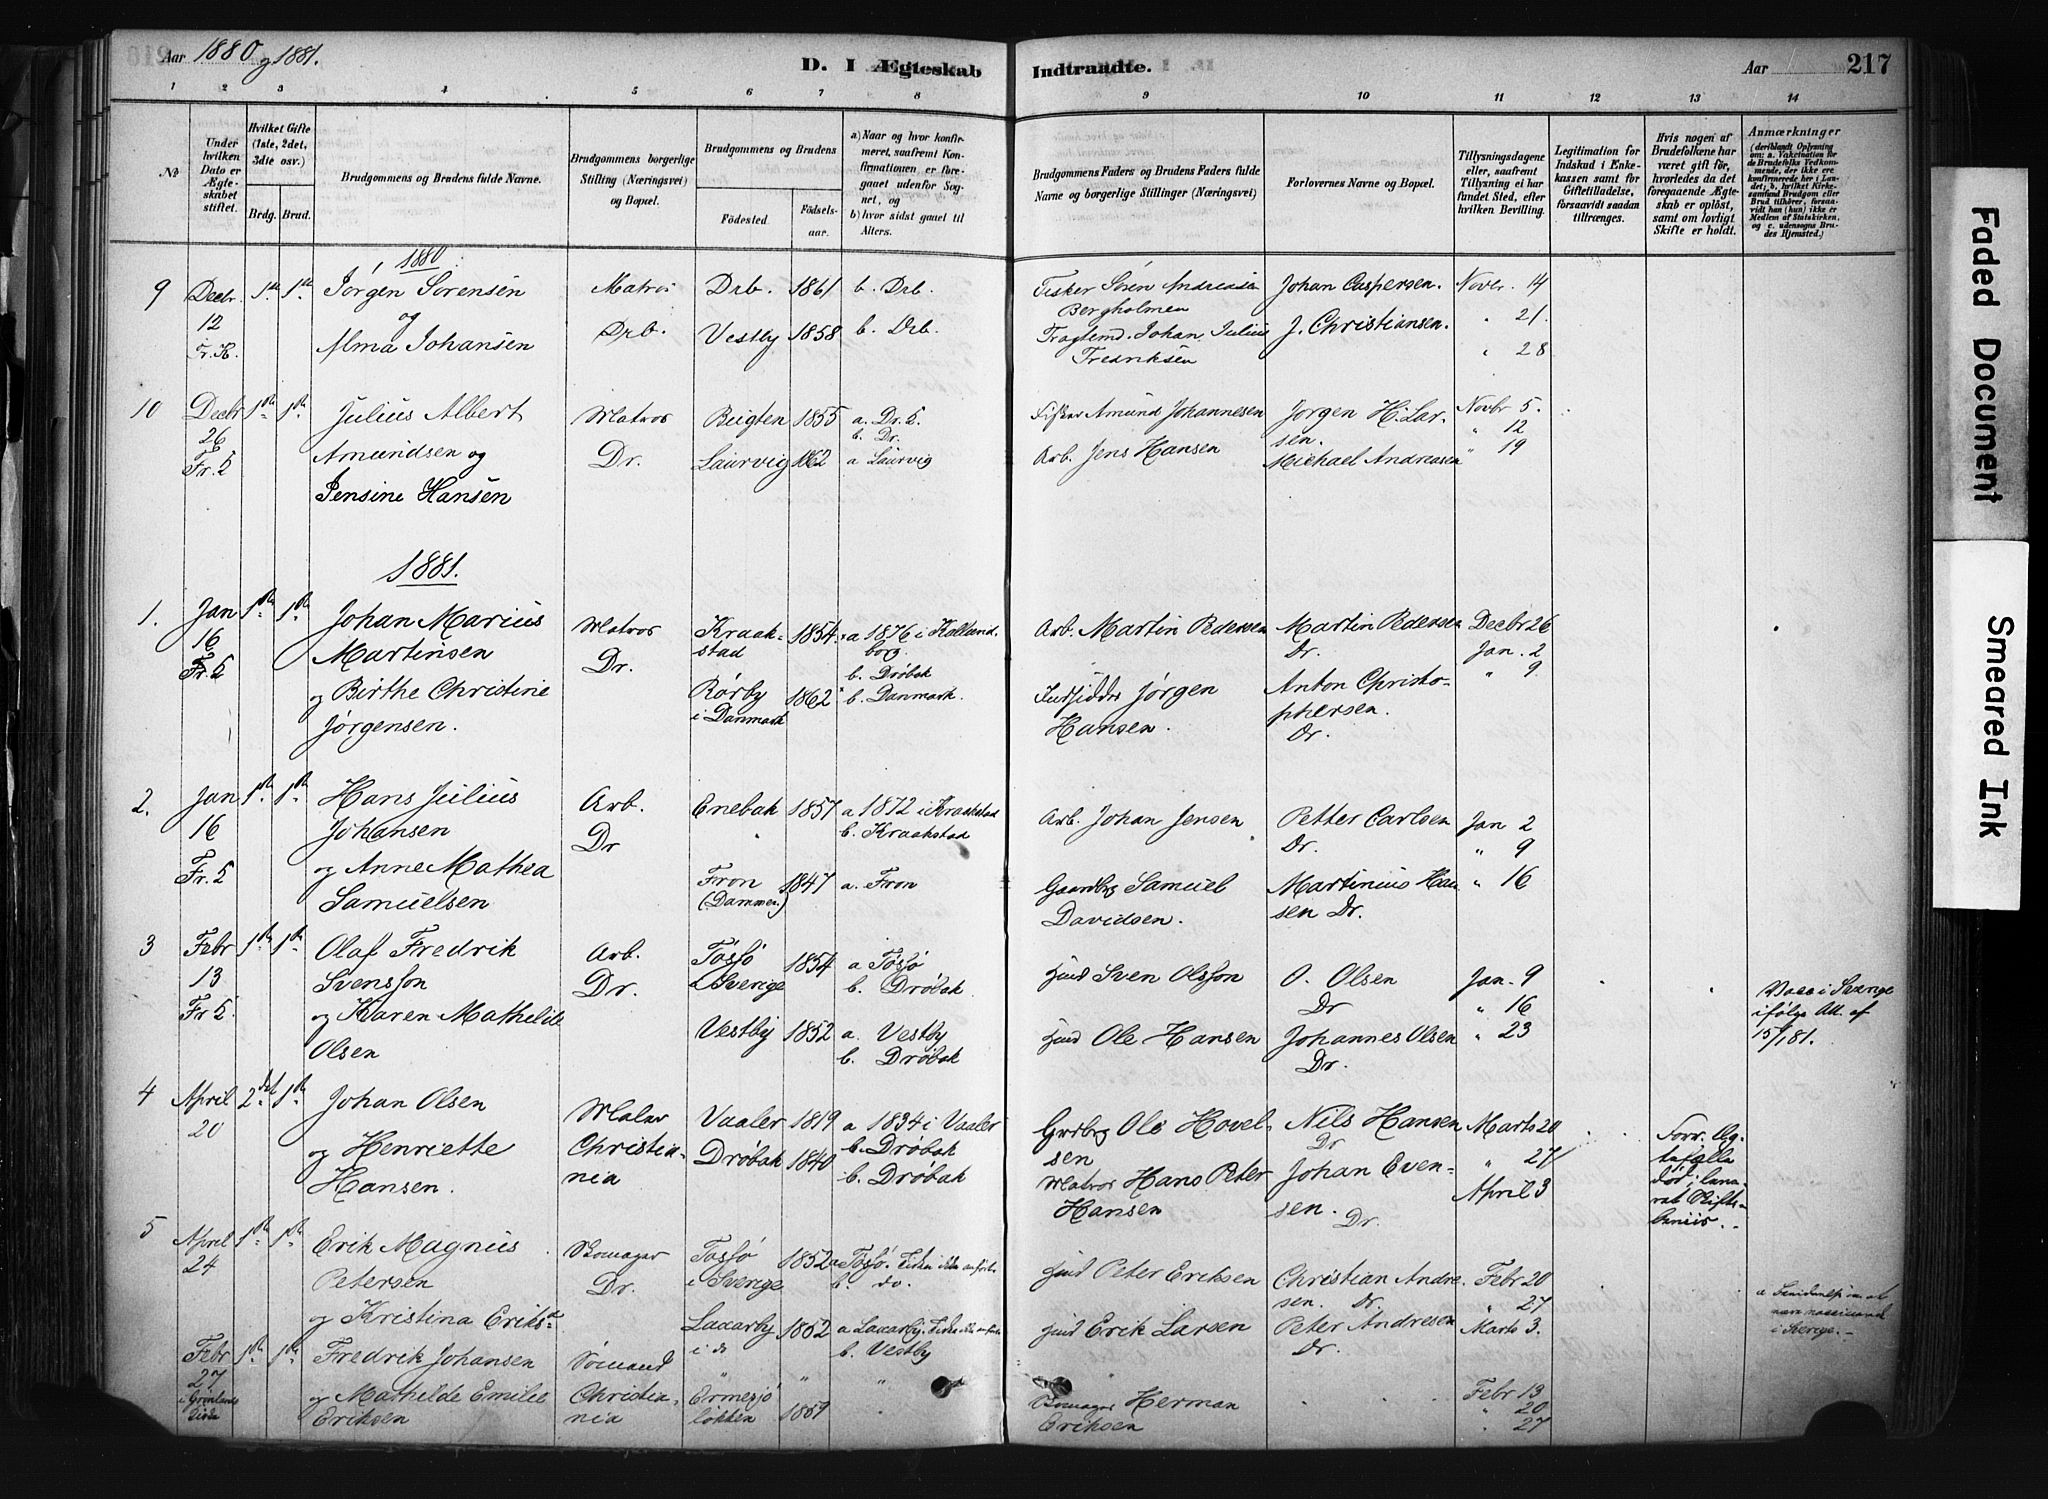 Aar 1880 og 1881.
D. I Ægteskab Indtraadte.
Aar 217
1 2 3 4 5 6 7 8 9 10 11 12 13 14
No
Under hvilken Dato er Ægteskabet stiftet.
Hvilket Gifte (1ste, 2det, 3die osv.)
Brdg. Brud.
Brudgommens og Brudens fulde Navne.
Brudgommens borgerlige Stilling (Næringsvei) og Bopæl.
Brudgommens og Brudens
Fødested.
Fødselsaar.
a) Naar og hvor konfirmeret, saafremt Konfirmationen er foregaaet udenfor Sognet, og
b) hvor sidst gaaet til Alters.
Brudgommens Faders og Brudens Faders fulde Navne og borgerlige Stillinger (Næringsvei)
Forlovernes Navne og Bopæl.
Tillysningsdagene eller, saafremt Tillysning ei har fundet Sted, efter hvilken Bevilling.
Legitimation for Indskud i Enkekassen samt for Giftetilladelse, forsaavidt saadan tiltrænges.
Hvis nogen af Brudefolkene har været gift før, hvorledes da det foregaaende Ægteskab er opløst, samt om lovligt Skifte er holdt.
Anmærkninger (deriblandt Oplysning om: a. Vakcination for de Brudefolks Vedkommende, der ikke ere konfirmerede her i Landet; b. hvilket Kirkesamfund Brudgom eller Brud tilhører, forsaavidt han (hun) ikke er Medlem af Statskirken, og c. udensogns Brudes Hjemsted.)
1880
9 Decbr. 12 Fr. K. 1ste 1ste Jørgen Sørensen
og
Alma Johansen
Matros Drb.
Drb. 1861 b. Drb.
Vestby 1858 b. Drb.
Fisker Søren Andreasen
Bergholmen
Fragtemd. Johan Julius
Fredriksen
Johan Caspersen.
J. Christiansen.
Novbr. 14
" 21.
" 28
10 Decbr 26 Fr. K 1ste 1ste Julius Albert
Amundsen og
Jensine Hansen
Matros Dr.
1855 a. Dr. K.
b. Dr.
Laurvig 1862 a Laurvig
Fisker Amund Johannesen
Arb. Jens Hansen
Jørgen H. Larsen.
Michael Andreasen
Novbr 5.
" 12
" 19
1881.
1. Jan 16 Fr. K 1ste 1ste Johan Marius
Martinsen
og Birthe Christine
Jørgensen.
Matros Dr.
Kraakstad 1854 a 1876 i Kallundborg.
b. Drøbak
Rørby i Danmark 1862 b. Danmark.
Arb. Martin Pedersen
Indsidder Jørgen
Hansen.
Martin Pedersen
Dr.
Anton Christophersen.
Dr.
Decbr 26
Jan. 2
" 9
2. Jan 16 Fr. K 1ste 1ste Hans Julius
Johansen
og Anne Mathea
Samuelsen
Arb. Dr
Enebak 1857 a 1872 i Kraakstad
b. Kraakstad
Fron (Dammen.) 1847 a. Fron
Arb. Johan Jensen
Gaardbrg Samuel
Davidsen.
Petter Carlsen
Dr.
Martinius Hansen Dr.
Jan 2
" 9
" 16
3 Febr 13 Fr K. 1ste 1ste Olaf Fredrik
Svensson
og Karen Mathilde
Olsen
Arb. Dr.
Tøssø i Sverige 1854 a Tøssø
b. Drøbak
Vestby 1852 a. Vestby
b. Drøbak
Husmd Sven Olsson
Husmd Ole Hansen
O. Olsen
Dr
Johannes Olsen
Dr.
Jan. 9
" 16
" 23
Vacc i Sverige
ifølge Att. af
4 April 20 2det 1ste Johan Olsen
og Henriette
Hansen.
Maler Christiania
Vaaler 1819 a 1834 i Vaaler
b. Drøbak
Drøbak 1840 b. Drøbak
Grdbrg Ole Hovelsen
Matros Hans Peter
Hansen
Nils Hansen
Dr
Johan Evensen.
Dr.
Marts 20
" 27
April 3
5 April 24 1ste 1ste Erik Magnus
Petersen
og Kristina Eriksd.
Skomager Dr.
Tøssø i Sverige 1852 a Tøssø. Tiden ikke anført
b. do.
Laxarby i do 1852 a Laxarby. Tiden ikke anført
b. Vestby
Husmd Peter Eriksen
Husmd Erik Larsen
Christian Andresen. Dr.
Peter Andresen
Dr.
Febr 20
" 27
Marts 3.
i Sverige.
Febr 27 i Grønlands Kirke 1ste 1ste Fredrik Johansen
og Mathilde Emilie
Eriksen
Sømand Christiania
" " "
Ermesjøløkken 1859
Skomager Herman
Eriksen
Febr 13
" 20
" 27
Faded Document
Smeared Ink